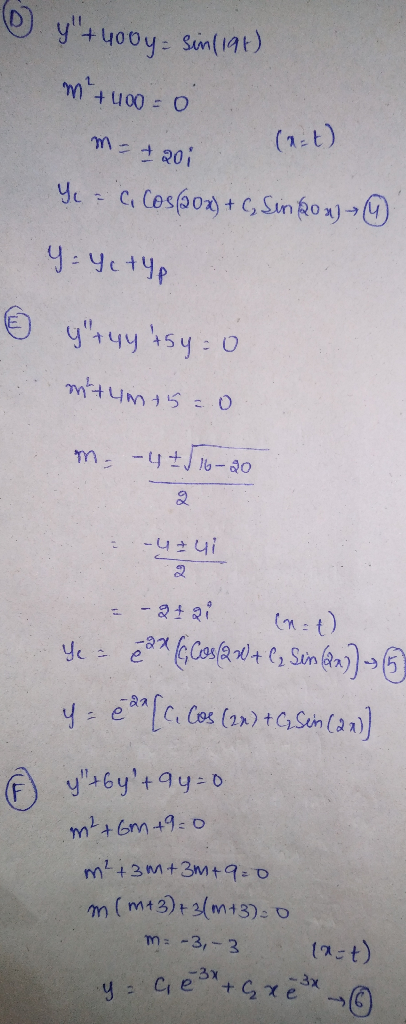 (D) y"+400y = Sin(19t)
m²+400 = 0
m = ± 20i (x=t)
yc = C₁ Cos(20x) + C₂ Sin(20x) → (4)
y = yc + yp
(E) y"+4y'+5y = 0
m²+4m+5 = 0
m = -4 ± √16-20 / 2
= -4 ± 4i / 2
= -2 ± 2i (x=t)
yc = e^-2x (C₁ Cos(2x) + C₂ Sin(2x)] → (5)
y = e^-2x [C₁ Cos (2x) + C₂ Sin (2x)]
(F) y"+6y'+9y=0
m²+6m+9=0
m²+3m+3m+9=0
m(m+3)+3(m+3)=0
m = -3, -3 (x=t)
y = C₁ e^-3x + C₂ x e^-3x → (6)